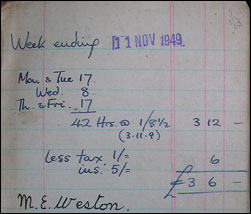 Week ending 11 NOV 1949
Mon & Tue 17.
Wed. 8.
Th. & Fri. 17
42 Hrs. @ 1/8½ 3 12 -
(3.11.9)
Less tax. 1/= 
ins. 5/= 6
£3 6 -
M. E. Weston.